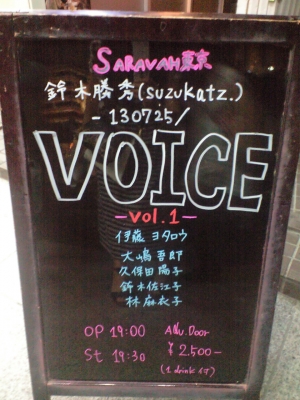 SARAVAH東京
鈴木勝秀(suzukatz.)
-130725/
VOICE
-vol.1-
伊藤ヨタロウ
大嶋吾郎
久保田陽子
鈴木佐江子
林麻衣子
OP 19:00 Adv. Door
St 19:30 ¥2,500-
(1drink付)